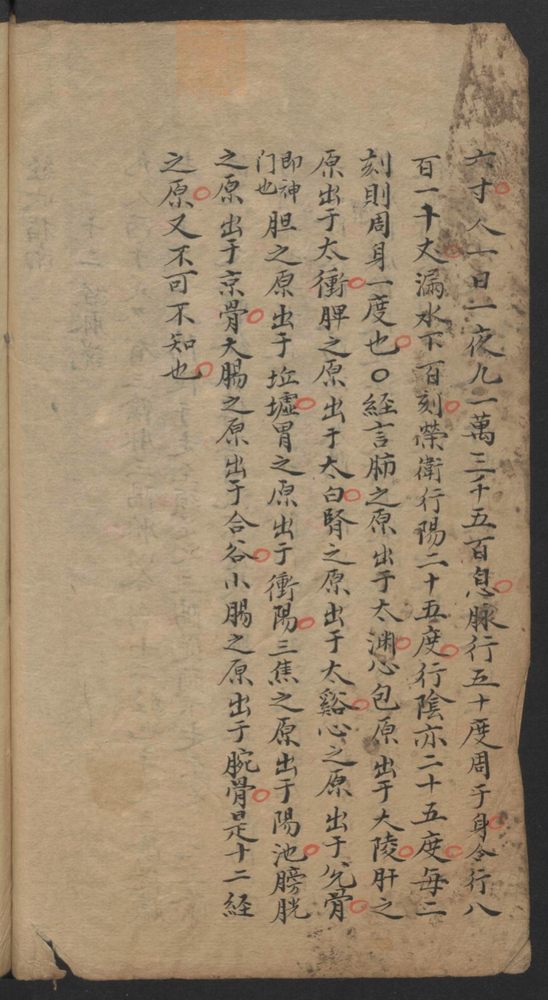 六寸人一日一夜九一萬三千五百息脉行五十度周于身合行八
百一十丈漏水下百刻榮衛行陽二十五度行陰亦二十五度每二
刻則周身一度也○經言肺之原出于太渊心包原出于大陵肝之
原出于太衝脾之原出于太白腎之原出于太谿心之原出于兌骨
即神门也胆之原出于坵墟胃之原出于衝陽三焦之原出于陽池膀胱
之原出于京骨大腸之原出于合谷小腸之原出于腕骨是十二経
之原又不可不知也